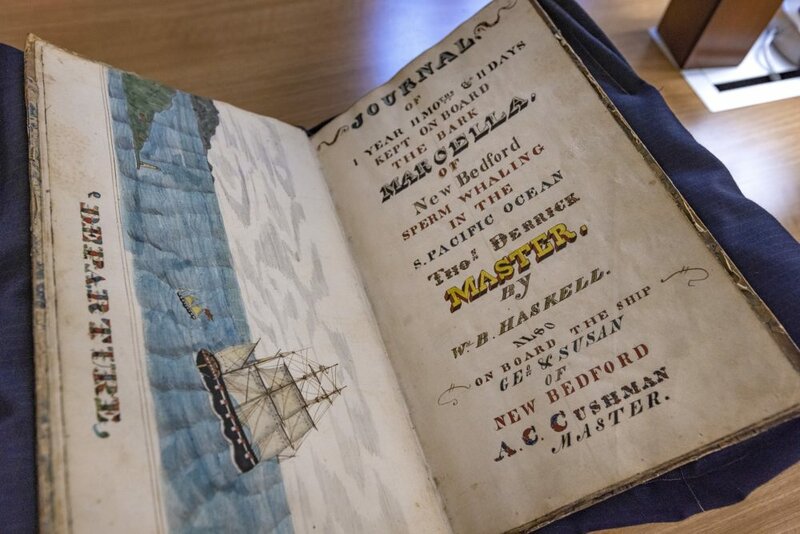 'DEPARTURE,
JOURNAL
OF
1 YEAR 11 MOTHS & 11 DAYS
KEPT ON BOARD
THE BARK
MARCELLA,
OF
New Bedford
SPERM WHALING
IN THE
S. PACIFIC OCEAN
THOS DERRICK
MASTER.
By
Wm B. HASKELL.
ALSO
ON BOARD THE SHIP
GEO & SUSAN
OF
NEW BEDFORD
A.C. CUSHMAN
MASTER.